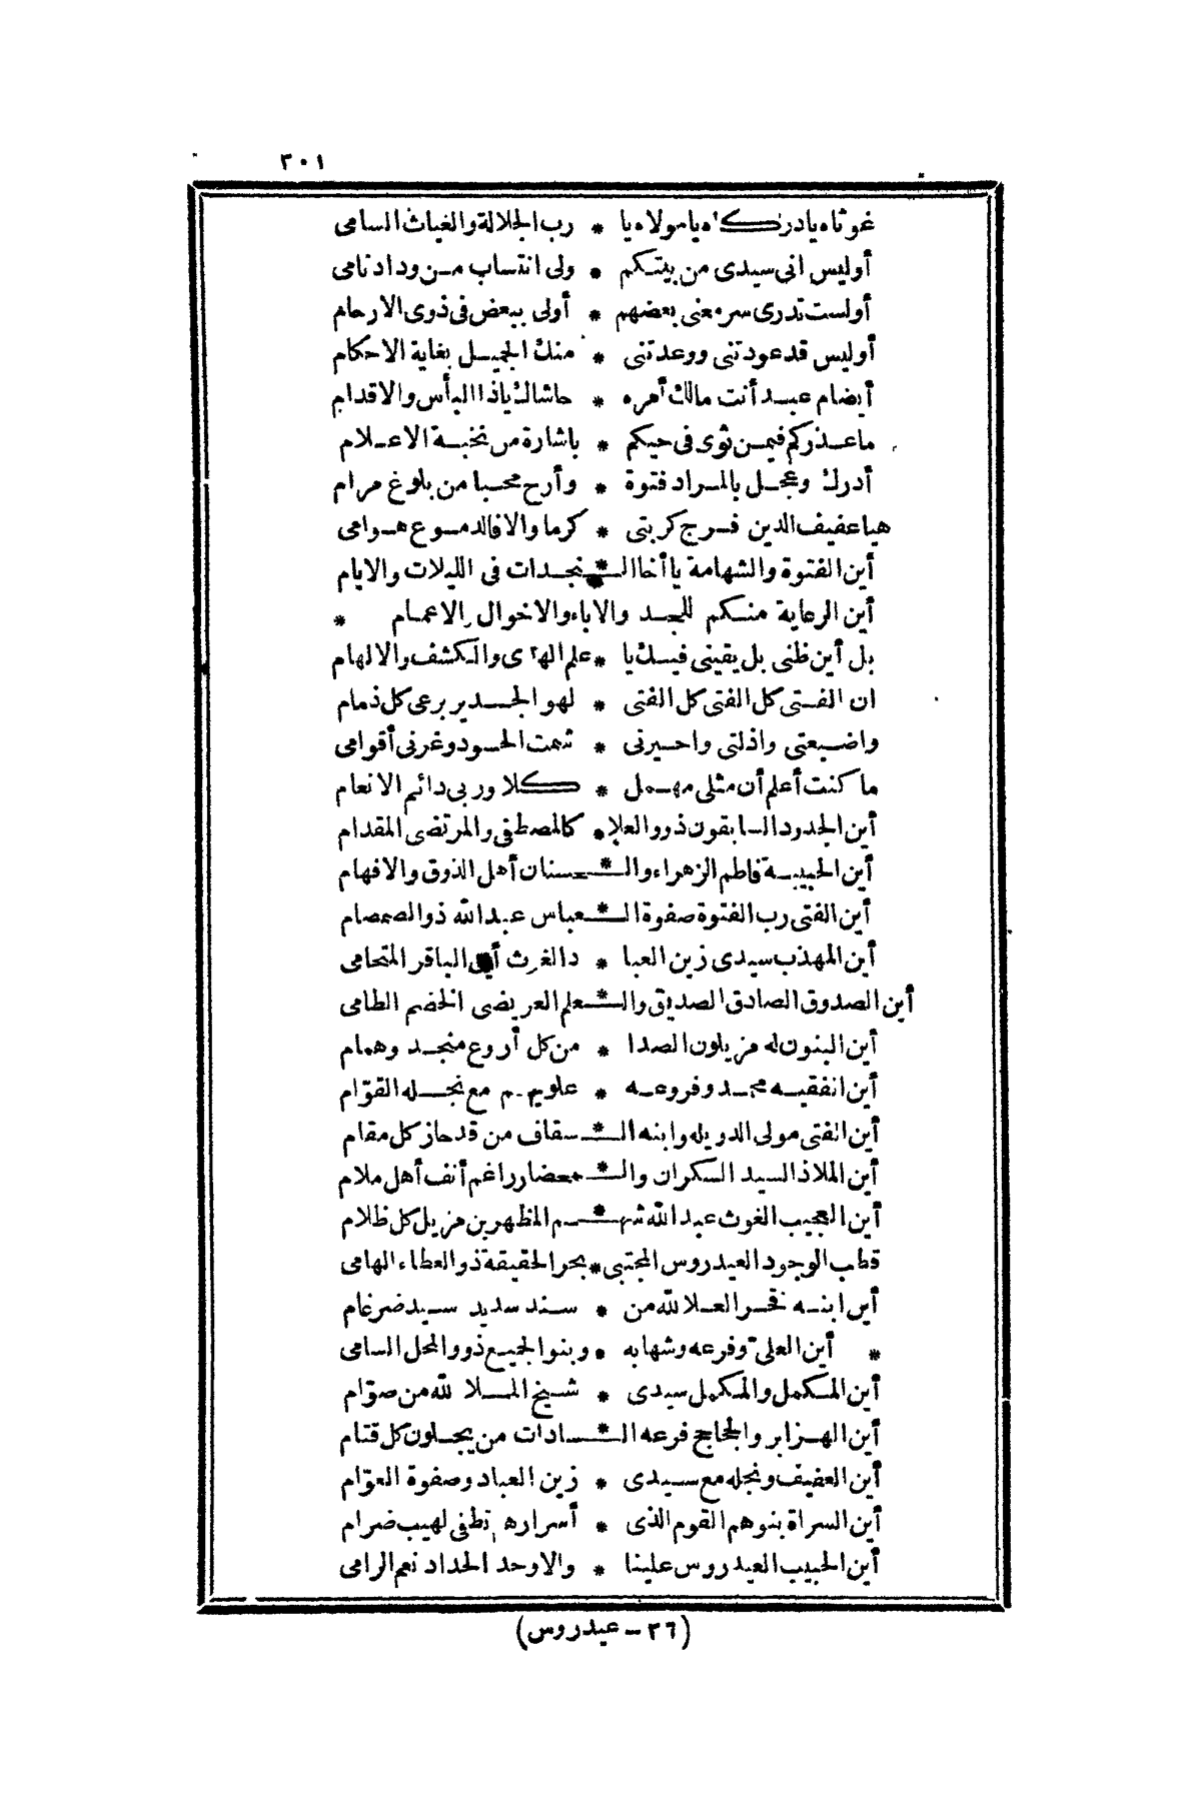 ٢٠١
غوثاه يا دركاه يا مولاه يا * رب الجلالة والغياث السامى
أوليس انى سيدى من بيتكم * ولى انتساب من وداد نامى
أولست تدرى سر معنى بعضهم * أولى ببعض فى ذوى الارحام
أوليس قد عودتنى ووعدتنى * منك الجميل بغاية الاحكام
أيضام عبد أنت مالك أمره * حاشاك ياذا البأس والاقدام
ما عذركم فيمن ثوى فى حيكم * باشارة من نخبة الاعلام
أدرك وعجل بالمراد فتوة * وأرح محبا من بلوغ مرام
هيا عفيف الدين فرج كربتى * كرما والا فالدموع هوامى
أين الفتوة والشهامة يا أخا الـ * نجدات فى الليلات والايام
أين الرعاية منكم للجد والاباء والاخوال والاعمام *
بل أين ظنى بل يقينى فيك يا * علم الهدى والكشف والالهام
ان الفتى كل الفتى كل الفتى * لهو الجدير برعى كل ذمام
واضيعتى واذلتى واحيرتى * شمت الحسود وغرنى أقوامى
ما كنت أعلم أن مثلى مهمل * كلا وربى دائم الانعام
أين الجدود السابقون ذوو العلا * كالمصطفى والمرتضى المقدام
أين الحبيبة فاطم الزهراء والـ * حسنان أهل الذوق والافهام
أين الفتى رب الفتوة صفوة الـ * عباس عبد الله ذو الصمصام
أين المهذب سيدى زين العبا * د الغوث أين الباقر المتحامى
أين الصدوق الصادق الصديق والـ * علم العريضى الخضم الطامى
أين البنون له مزيلون الصدا * من كل أروع منجد وهمام
أين الفقيه محمد وفروعه * علويهم مع نجله القوّام
أين الفتى مولى الدويله وابنه الـ * سقاف من قد حاز كل مقام
أين الملاذ السيد السكران والـ * محضار راغم أنف أهل ملام
أين العجيب الغوث عبد الله شهـ * م المظهرين مزيل كل ظلام
قطب الوجود العيدروس المجتبى * بحر الحقيقة ذو العطاء الهامى
أين ابنه فخر العلا لله من * سند سديد سيد ضرغام
* أين العلىّ وفرعه وشهابه * وبنو الجميع ذوو المحل السامى
أين المكمل والمكمل سيدى * شيخ الملا لله من صوّام
أين الهزابر والجحاجح فرعه الـ * سادات من يجلون كل قتام
أين العفيف ونجله مع سيدى * زين العباد وصفوة العوّام
أين السراة بنوهم القوم الذى * أسرارهم تطفى لهيب ضرام
أين الحبيب العيدروس علينا * والاوحد الحداد نعم الرامى
(٢٦ – عيدروس)